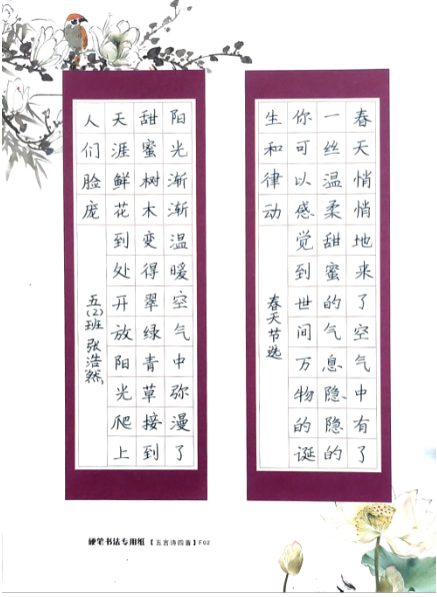 春天悄悄地来了空气中有了
一丝温柔甜蜜的气息隐隐的
你可以感觉到世间万物的诞
生和律动
春天节选
阳光渐渐温暖空气中弥漫了
甜蜜树木变得翠绿青草接到
天涯鲜花到处开放阳光爬上
人们脸庞
五(2)班 张浩然
硬笔书法专用纸【五言诗四首】F02